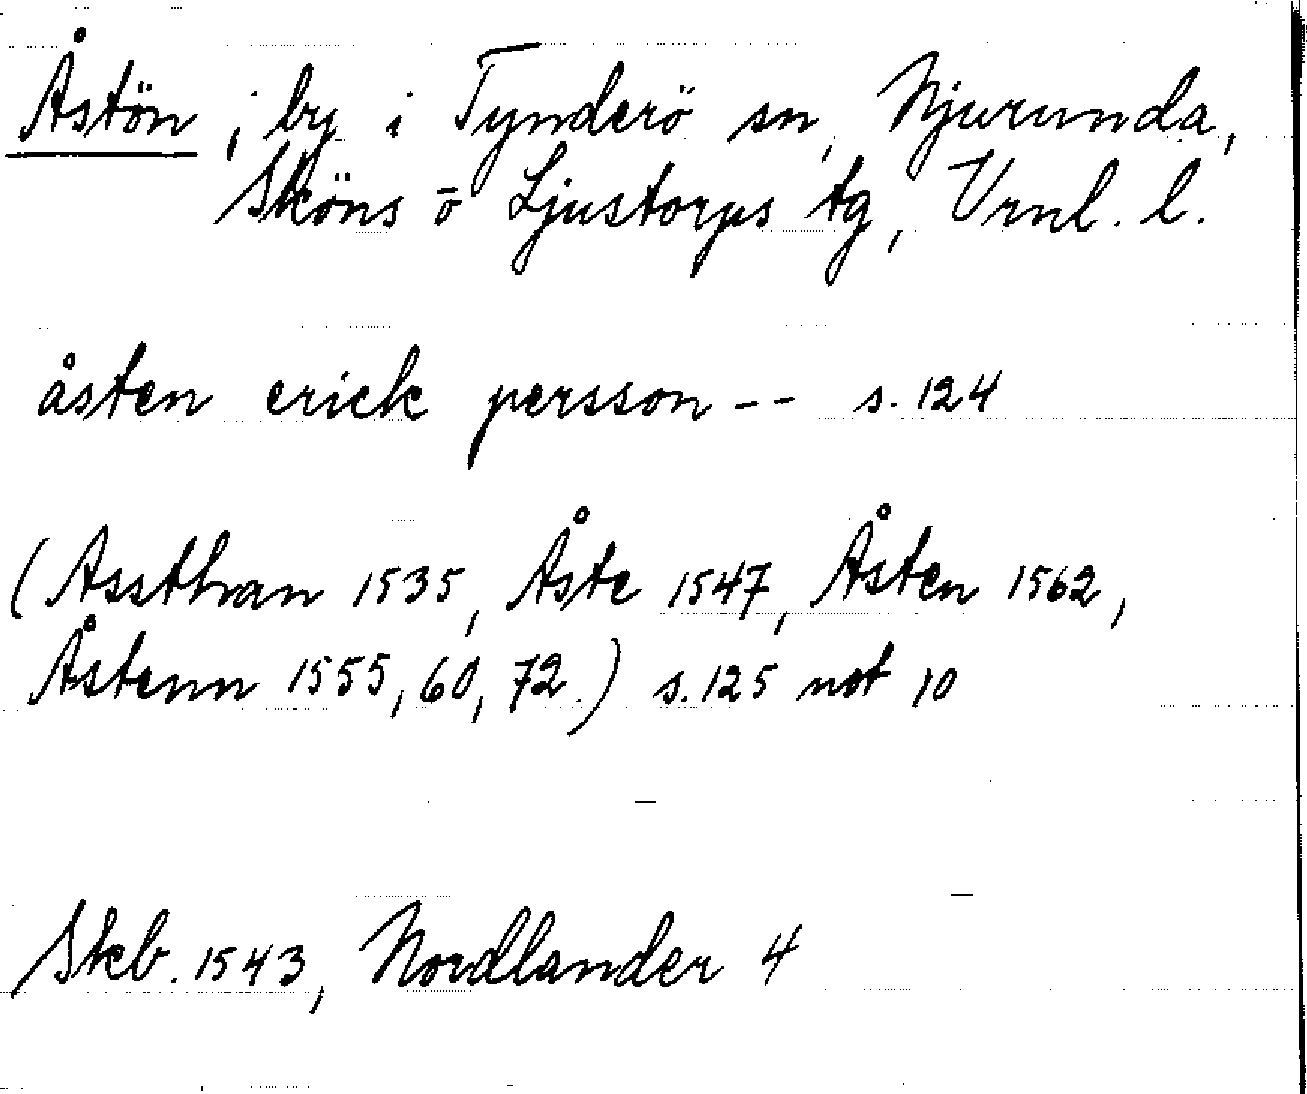 Åstön, by i Tynderö sn, Njurunda,
Sköns o Ljustorps tg, Vrnl. l.
åsten erick persson -- s. 124
(Assthan 1535, Åste 1547, Åsten 1562,
Åstenn 1555, 60, 72.) s. 125 not 10
Skb. 1543, Nordlander 4